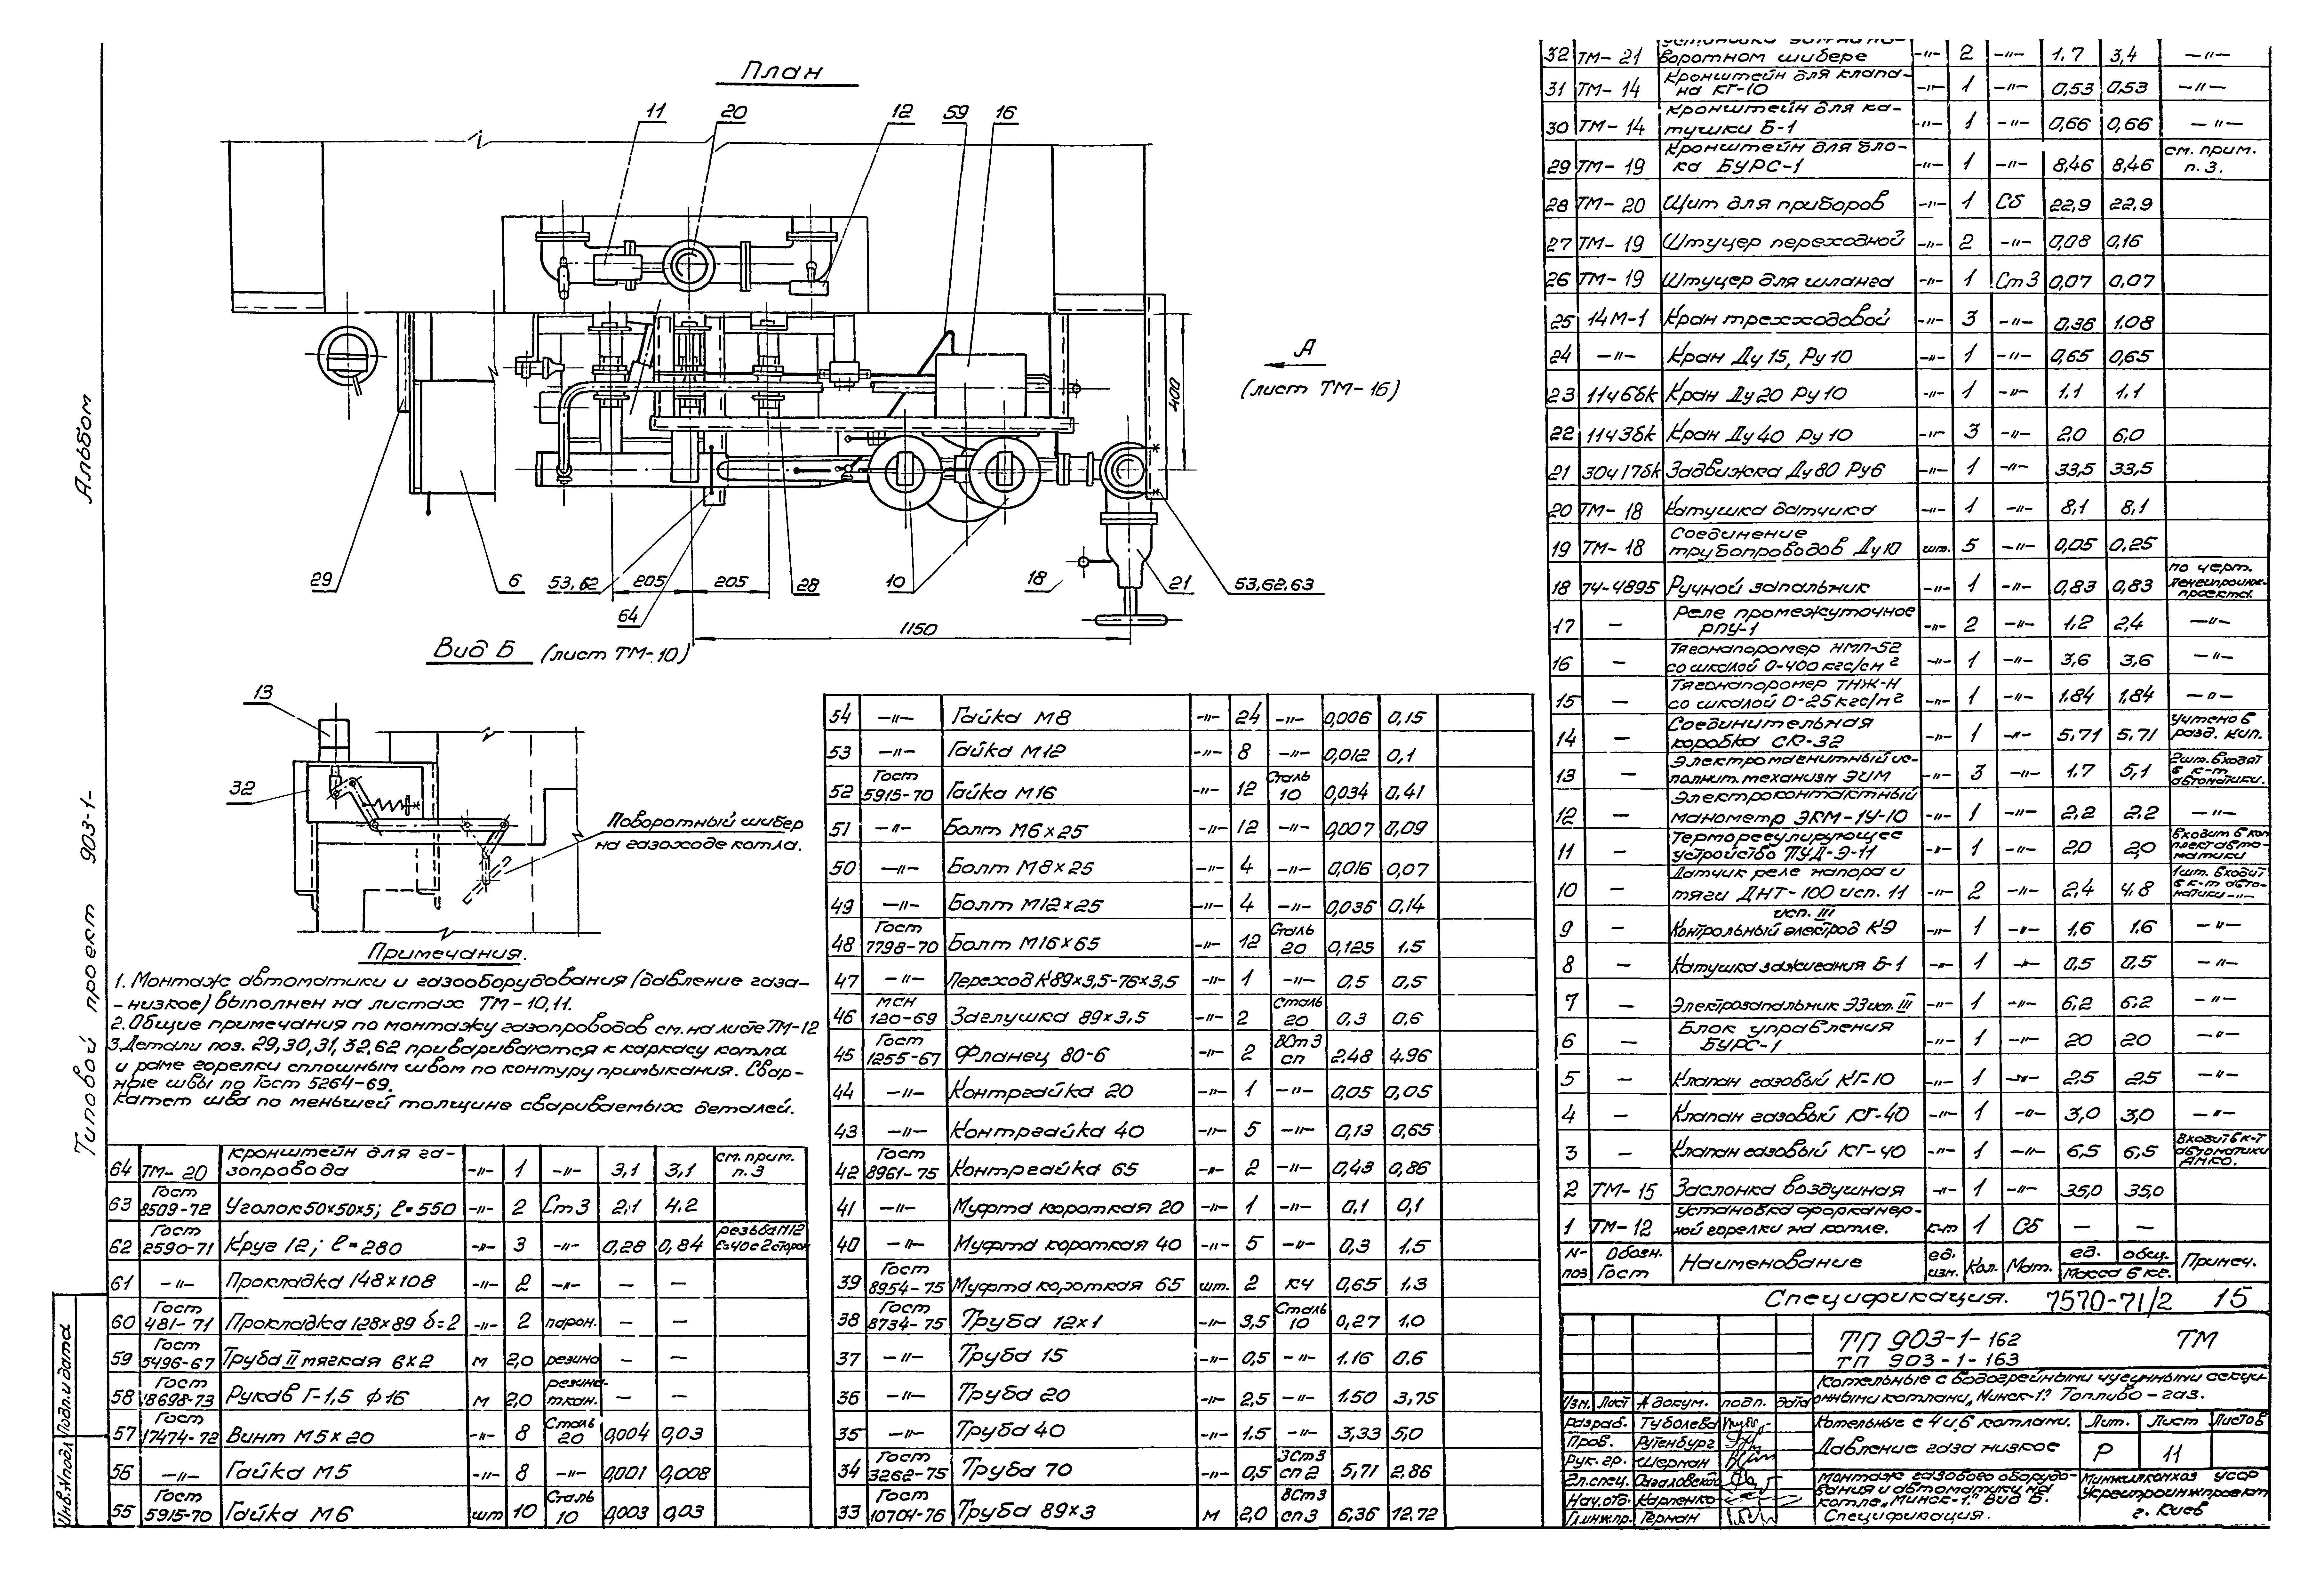 Альбом
Типовой проект 903-1-
Инв.№подл Подп.и дата
План
11
20
12
59
16
А
(лист ТМ-16)
400
29
6
53,62
205
205
64
28
10
18
21
53,62,63
1150
Вид Б (лист ТМ-10)
13
32
Поворотный шибер
на газоходе котла.
Примечания.
1. Монтаж автоматики и газооборудования (давление газа-
-низкое) выполнен на листах ТМ-10,11.
2. Общие примечания по монтажу газопроводов см. на листе ТМ-12
3. Детали поз. 29,30,31,32,62 привариваются к каркасу котла
и раме горелки сплошным швом по контуру примыкания. Свар-
ные швы по Гост 5264-69.
Катет шва по меньшей толщине свариваемых деталей.
64 ТМ-20 Кронштейн для га-зопровода -"- 1 -"- 3,1 3,1 см. прим. п.3
63 Гост 8509-72 Уголок 50х50х5; ℓ=550 -"- 2 Ст3 2,1 4,2
62 Гост 2590-71 Круг 12; ℓ=280 -"- 3 -"- 0,28 0,84 резьба М12 ℓ=40 с 2 сторон
61 -"- Прокладка 148х108 -"- 2 -"- — —
60 Гост 481-71 Прокладка 128х89 δ=2 -"- 2 парон. — —
59 Гост 5496-67 Труба II мягкая 6х2 м 2,0 резина — —
58 Гост 18698-73 Рукав Г-1,5 ф16 м 2,0 резино-ткан. — —
57 Гост 17474-72 Винт М5х20 -"- 8 Сталь 20 0,004 0,03
56 -"- Гайка М5 -"- 8 -"- 0,001 0,008
55 Гост 5915-70 Гайка М6 шт 10 Сталь 10 0,003 0,03
54 -"- Гайка М8 -"- 24 -"- 0,006 0,15
53 -"- Гайка М12 -"- 8 -"- 0,012 0,1
52 Гост 5915-70 Гайка М16 -"- 12 Сталь 10 0,034 0,41
51 -"- Болт М6х25 -"- 12 -"- 0,007 0,09
50 -"- Болт М8х25 -"- 4 -"- 0,016 0,07
49 -"- Болт М12х25 -"- 4 -"- 0,036 0,14
48 Гост 7798-70 Болт М16х65 -"- 12 Сталь 20 0,125 1.5
47 -"- Переход К89х3,5-76х3,5 -"- 1 -"- 0,5 0,5
46 МСН 120-69 Заглушка 89х3,5 -"- 2 Сталь 20 0,3 0,6
45 Гост 1255-67 Фланец 80-6 -"- 2 ВСт3 сп 2,48 4,96
44 -"- Контргайка 20 -"- 1 -"- 0,05 0,05
43 -"- Контргайка 40 -"- 5 -"- 0,13 0,65
42 Гост 8961-75 Контргайка 65 -"- 2 -"- 0,43 0,86
41 -"- Муфта короткая 20 -"- 1 -"- 0,1 0,1
40 -"- Муфта короткая 40 -"- 5 -"- 0,3 1.5
39 Гост 8954-75 Муфта короткая 65 шт. 2 КЧ 0,65 1.3
38 Гост 8734-75 Труба 12х1 -"- 3,5 Сталь 10 0,27 1.0
37 -"- Труба 15 -"- 0,5 -"- 1.16 0.6
36 -"- Труба 20 -"- 2,5 -"- 1.50 3,75
35 -"- Труба 40 -"- 1.5 -"- 3,33 5,0
34 Гост 3262-75 Труба 70 -"- 0,5 ВСт3 сп 2 5,71 2,86
33 Гост 10704-76 Труба 89х3 м 2,0 ВСт3 сп3 6,36 12,72
32 ТМ-21 воротном шибере -"- 2 -"- 1.7 3,4 -"-
31 ТМ-14 Кронштейн для клапа-на КГ-10 -"- 1 -"- 0,53 0,53 -"-
30 ТМ-14 Кронштейн для ка-тушки Б-1 -"- 1 -"- 0,66 0,66 -"-
29 ТМ-19 Кронштейн для бло-ка БУРС-1 -"- 1 -"- 8,46 8,46 см. прим. п.3.
28 ТМ-20 Щит для приборов -"- 1 Сб 22,9 22.9
27 ТМ-19 Штуцер переходной -"- 2 -"- 0,08 0,16
26 ТМ-19 Штуцер для шланга -"- 1 Ст3 0,07 0,07
25 14М-1 Кран трехходовой -"- 3 -"- 0,36 1.08
24 -"- Кран Ду 15, Ру 10 -"- 1 -"- 0,65 0,65
23 11ч6бк Кран Ду20 Ру10 -"- 1 -"- 1.1 1.1
22 11ч3бк Кран Ду40 Ру10 -"- 3 -"- 2.0 6,0
21 30ч17бк Задвижка Ду80 Ру6 -"- 1 -"- 33,5 33,5
20 ТМ-18 Катушка датчика -"- 1 -"- 8,1 8,1
19 ТМ-18 Соединение трубопроводов Ду10 шт. 5 -"- 0,05 0,25
18 74-4895 Ручной запальник -"- 1 -"- 0,83 0,83 по черт.
17 — Реле промежуточное РПУ-1 -"- 2 -"- 1,2 2,4 -"-
16 — Тягонапоромер НМП-52 со шкалой 0-400 кгс/см² -"- 1 -"- 3,6 3,6 -"-
15 — Тягонапоромер ТНЖ-Н со шкалой 0-25кгс/м² -"- 1 -"- 1.84 1,84 -"-
14 — Соединительная коробка СК-32 -"- 1 -"- 5,71 5,71 учтено в разд. кип.
13 — Электромагнитный ис-полнит. механизм ЭИМ -"- 3 -"- 1.7 5,1 2шт. входят в к-т автоматики.
12 — Электроконтактный манометр ЭКМ-1У-10 -"- 1 -"- 2.2 2.2 -"-
11 — Терморегулирующее устройство ПУД-Э-11 -"- 1 -"- 2,0 2,0 входит в ком плект авто-матики
10 — Датчик реле напора и тяги ДНТ-100 исп. 11 -"- 2 -"- 2,4 4,8 1шт. входит в к-т авто-матики -"-
9 — исп. III Контрольный электрод КЭ -"- 1 -"- 1,6 1.6 -"-
8 — Катушка зажигания Б-1 -"- 1 -"- 0,5 0,5 -"-
7 — Электрозапальник ЭЗ исп. III -"- 1 -"- 6.2 6.2 -"-
6 — Блок управления БУРС-1 -"- 1 -"- 20 20 -"-
5 — Клапан газовый КГ-10 -"- 1 -"- 2,5 2.5 -"-
4 — Клапан газовый КГ-40 -"- 1 -"- 3,0 3,0 -"-
3 — Клапан газовый КГ-40 -"- 1 -"- 6,5 6,5 Входит в к-т автоматики АМКО.
2 ТМ-15 Заслонка воздушная -"- 1 -"- 35,0 35,0
1 ТМ-12 Установка форкамер-ной горелки на котле. к-т 1 Сб — —
№ поз Обозн. Гост Наименование ед. изм. Кол. Мат. ед. общ. Масса в кг. Примеч.
Спецификация. 7570-71/2 15
ТП 903-1-162 ТМ
ТП 903-1-163
Котельные с водогрейными чугунными секци-
онными котлами „Минск-1". Топливо-газ.
Изм. Лист № докум. подп. дата
Разраб. Туболева
Пров. Рутенбург
Рук.гр. Шерман
Гл.спец.
Нач.отд. Карпенко
Гл.инж.пр. Герман
Котельные с 4 и 6 котлами.
Давление газа низкое
Лит. Лист Листов
Р 11
Монтаж газового оборудо-
вания и автоматики на
котле „Минск-1". Вид Б.
Спецификация.
Минжилкомхоз УССР
Укргипроинжпроект
г. Киев